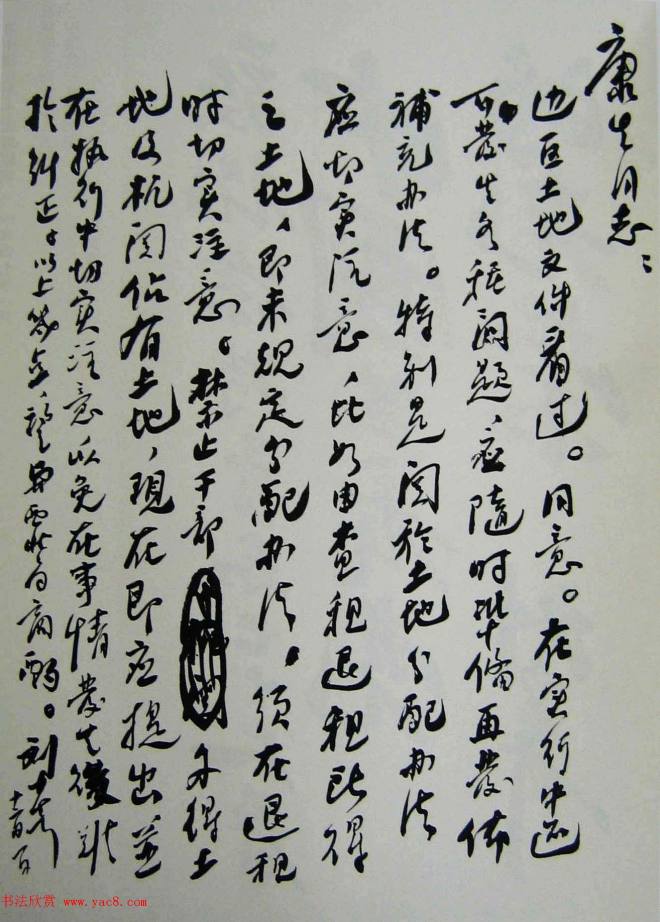 康生同志：
边区土地文件看过。同意。在实行中还
可发生各种问题，应随时准备再发佈
补充办法。特别是関於土地分配办法
应切实注意，比如由查租退租所得
之土地，即未规定分配办法。须在退租
时切实注意。禁止干部多得土
地及机関佔有土地，现在即应提出並
在执行中切实注意以免在事情发生後难
於纠正。以上几点，望与雲北商酌。刘少奇
书法欣赏 www.yac8.com